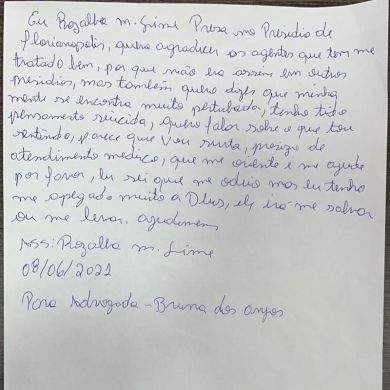 Eu Rozalba m. Grime Presa no Presidio de
florianopólis, quero agradecer os agentes que tem me
tratado bem, por que não era assim em outros
presidios, mas também quero dizer que minha
mente se encontra muito pertubada, tenho tido
pensamento suicida, quero falar sobre o que tou
sentindo, parece que vou surta, preciso de
atendimento medico, que me oriente e me ajude
por favor, Eu sei que me odeio mas Eu tenho
me apegado muito a Deus, ele irá me salvar
ou me levar.
Ass: Rozalba m. Grime
08/06/2021
Para Advogada - Bruna dos anjos